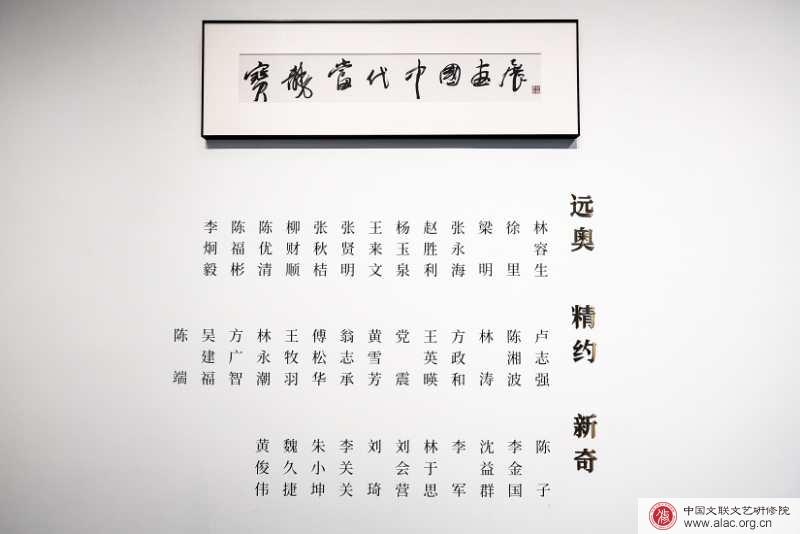 寶龍當代中國畫展
远奥
林容生
徐里
梁明
张永海
赵胜利
杨玉泉
王来文
张贤明
张秋桔
柳财顺
陈优清
陈福彬
李炯毅
精约
卢志强
陈湘波
林涛
方政和
王英暎
党震
黄雪芳
翁志承
傅松华
王牧羽
林永潮
方广智
吴建福
陈端
新奇
陈子
李金国
沈益群
李军
林于思
刘会营
刘琦
李关关
朱小坤
魏久捷
黄俊伟
中国文联文艺研修院
www.alac.org.cn